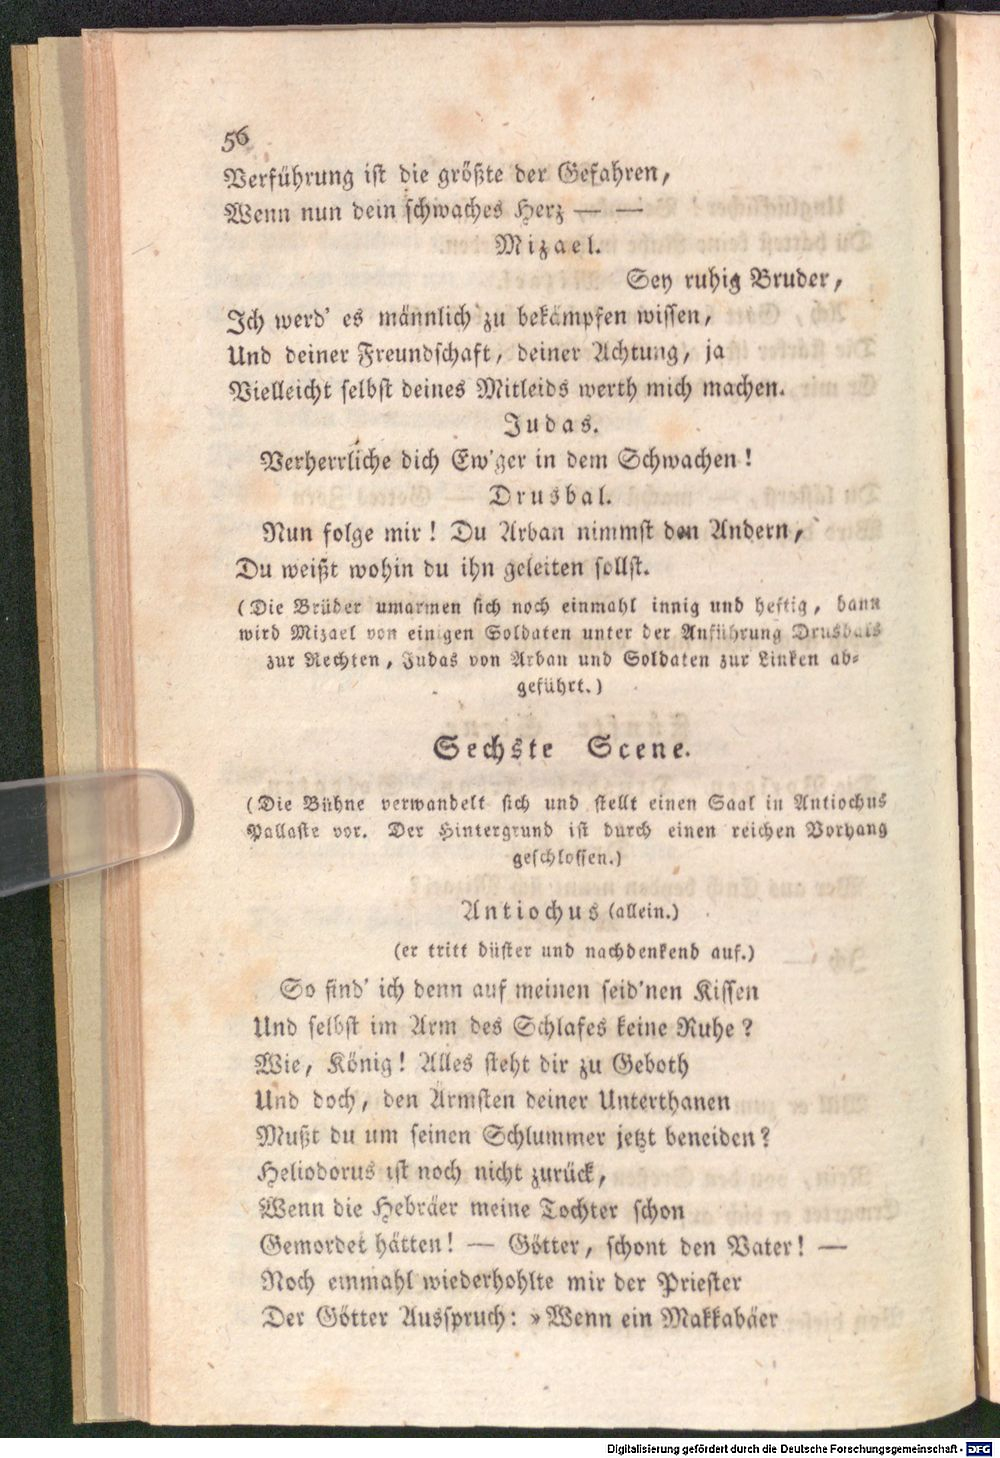 56
Verführung ist die größte der Gefahren,
Wenn nun dein schwaches Herz — —
Mizael.
Sey ruhig Bruder,
Ich werd' es männlich zu bekämpfen wissen,
Und deiner Freundschaft, deiner Achtung, ja
Vielleicht selbst deines Mitleids werth mich machen.
Judas.
Verherrliche dich Ew'ger in dem Schwachen!
Drusbal.
Nun folge mir! Du Arban nimmst den Andern,
Du weißt wohin du ihn geleiten sollst.
(Die Brüder umarmen sich noch einmahl innig und heftig, dann
wird Mizael von einigen Soldaten unter der Anführung Drusbals
zur Rechten, Judas von Arban und Soldaten zur Linken ab-
geführt.)
Sechste Scene.
(Die Bühne verwandelt sich und stellt einen Saal in Antiochus
Pallaste vor. Der Hintergrund ist durch einen reichen Vorhang
geschlossen.)
Antiochus (allein.)
(er tritt düster und nachdenkend auf.)
So find' ich denn auf meinen seid'nen Kissen
Und selbst im Arm des Schlafes keine Ruhe?
Wie, König! Alles steht dir zu Geboth
Und doch, den Ärmsten deiner Unterthanen
Mußt du um seinen Schlummer jetzt beneiden?
Heliodorus ist noch nicht zurück,
Wenn die Hebräer meine Tochter schon
Gemordet hätten! — Götter, schont den Vater! —
Noch einmahl wiederhohlte mir der Priester
Der Götter Ausspruch: »Wenn ein Makkabäer
Digitalisierung gefördert durch die Deutsche Forschungsgemeinschaft - DFG